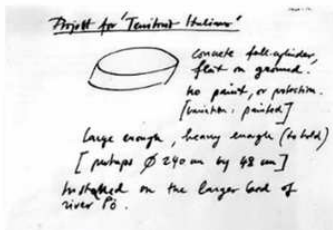 Projekt for 'Territorio Italiano'
concrete full-cylinder,
flat on ground.
no paint, or protection.
[variation: painted]
Large enough, heavy enough (to hold)
[perhaps Ø 240 cm by 48 cm]
Installed on the larger land of
river Po.